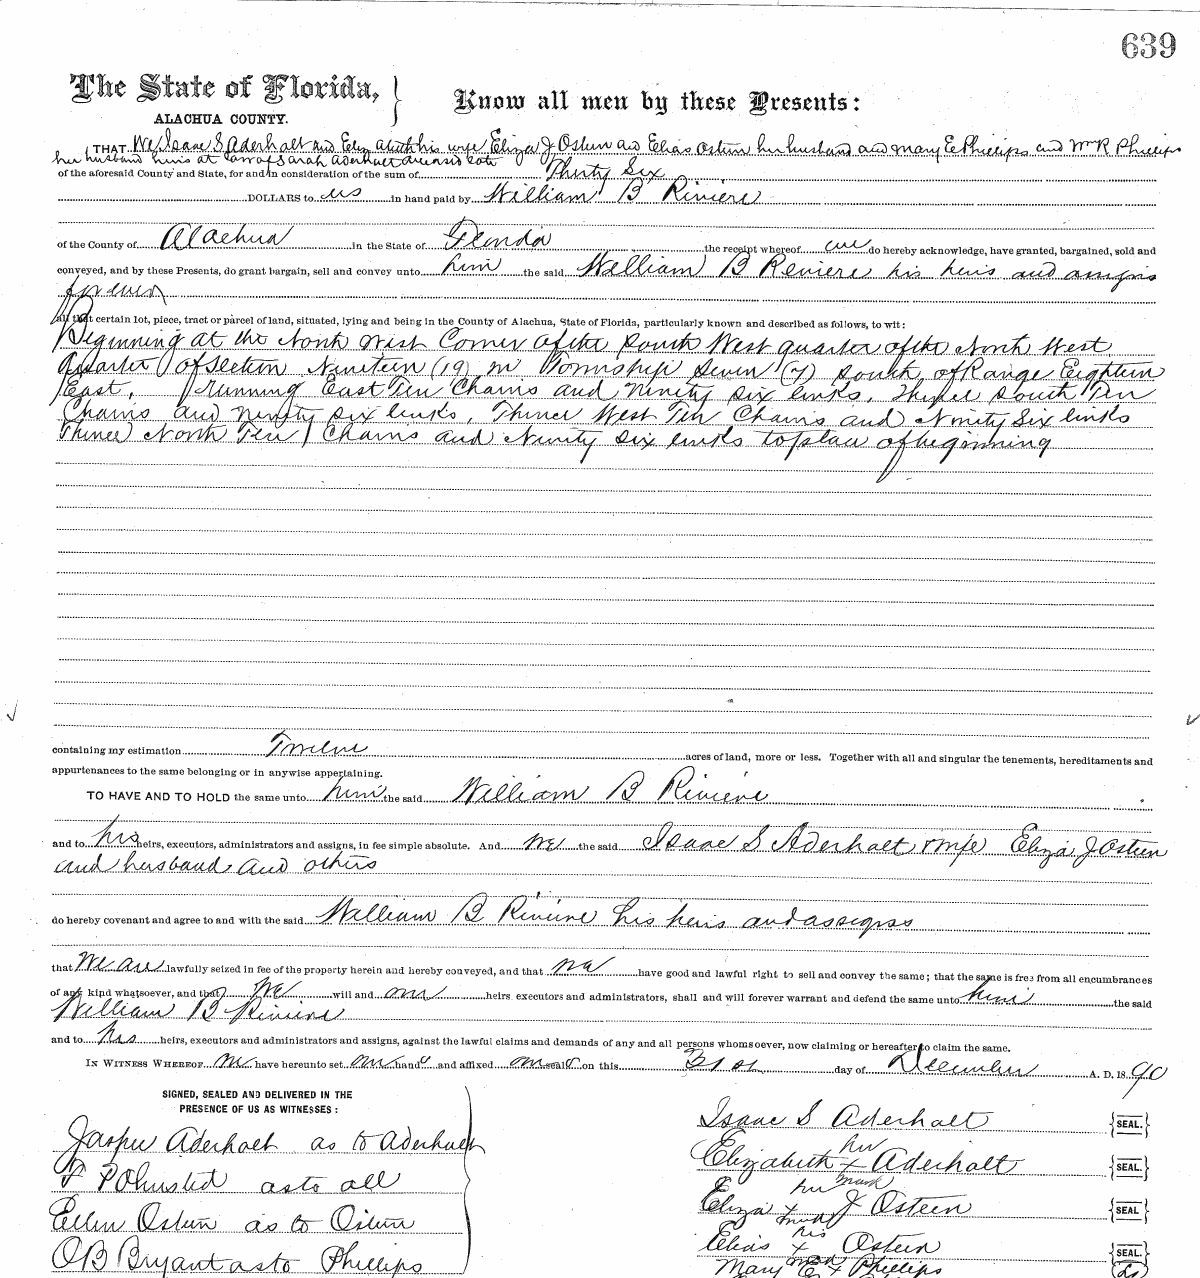 639
The State of Florida,
ALACHUA COUNTY.
Know all men by these Presents:
THAT We Isaac S Aderholt and Elizabeth his wife Eliza J Osteen and Elias Osteen her husband and Mary E Phillips and Wm R Phillips
her husband heirs at law of Sarah Aderholt deceased late
of the aforesaid County and State, for and in consideration of the sum of Thirty Six
DOLLARS to us in hand paid by William B Riviere
of the County of Alachua in the State of Florida the receipt whereof we do hereby acknowledge, have granted, bargained, sold and
conveyed, and by these Presents, do grant bargain, sell and convey unto him the said William B Reviere his heirs and assigns
forever
all that certain lot, piece, tract or parcel of land, situated, lying and being in the County of Alachua, State of Florida, particularly known and described as follows, to wit:
Beginning at the North West Corner of the South West quarter of the North West
quarter of Section Nineteen (19) in Township Seven (7) South of Range Eighteen
East, Running East Ten Chains and Ninety six links, Thence South Ten
Chains and Ninety six links, Thence West Ten Chains and Ninety Six links
Thence North Ten Chains and Ninety six links to place of beginning
containing my estimation Twelve acres of land, more or less. Together with all and singular the tenements, hereditaments and
appurtenances to the same belonging or in anywise appertaining.
TO HAVE AND TO HOLD the same unto him the said William B Riviere
and to his heirs, executors, administrators and assigns, in fee simple absolute. And We the said Isaac S Aderholt & wife Eliza J Osteen
and husband and others
do hereby covenant and agree to and with the said William B Riviere his heirs and assigns
that We are lawfully seized in fee of the property herein and hereby conveyed, and that we have good and lawful right to sell and convey the same; that the same is free from all encumbrances
of any kind whatsoever, and that We will and our heirs executors and administrators, shall and will forever warrant and defend the same unto him the said
William B Riviere
and to his heirs, executors and administrators and assigns, against the lawful claims and demands of any and all persons whomsoever, now claiming or hereafter to claim the same.
IN WITNESS WHEREOF we have hereunto set our hands and affixed our seals on this 31st day of December A. D. 1890
SIGNED, SEALED AND DELIVERED IN THE
PRESENCE OF US AS WITNESSES:
Jasper Aderholt as to Aderholt
Isaac S Aderholt {SEAL.}
her
Elizabeth x Aderholt {SEAL.}
mark
as to all
her
Eliza x J Osteen {SEAL}
mark
Ellen Osteen as to Osteen
his
Elias x Osteen {SEAL.}
mark
O B Bryant as to Phillips
Mary E x Phillips